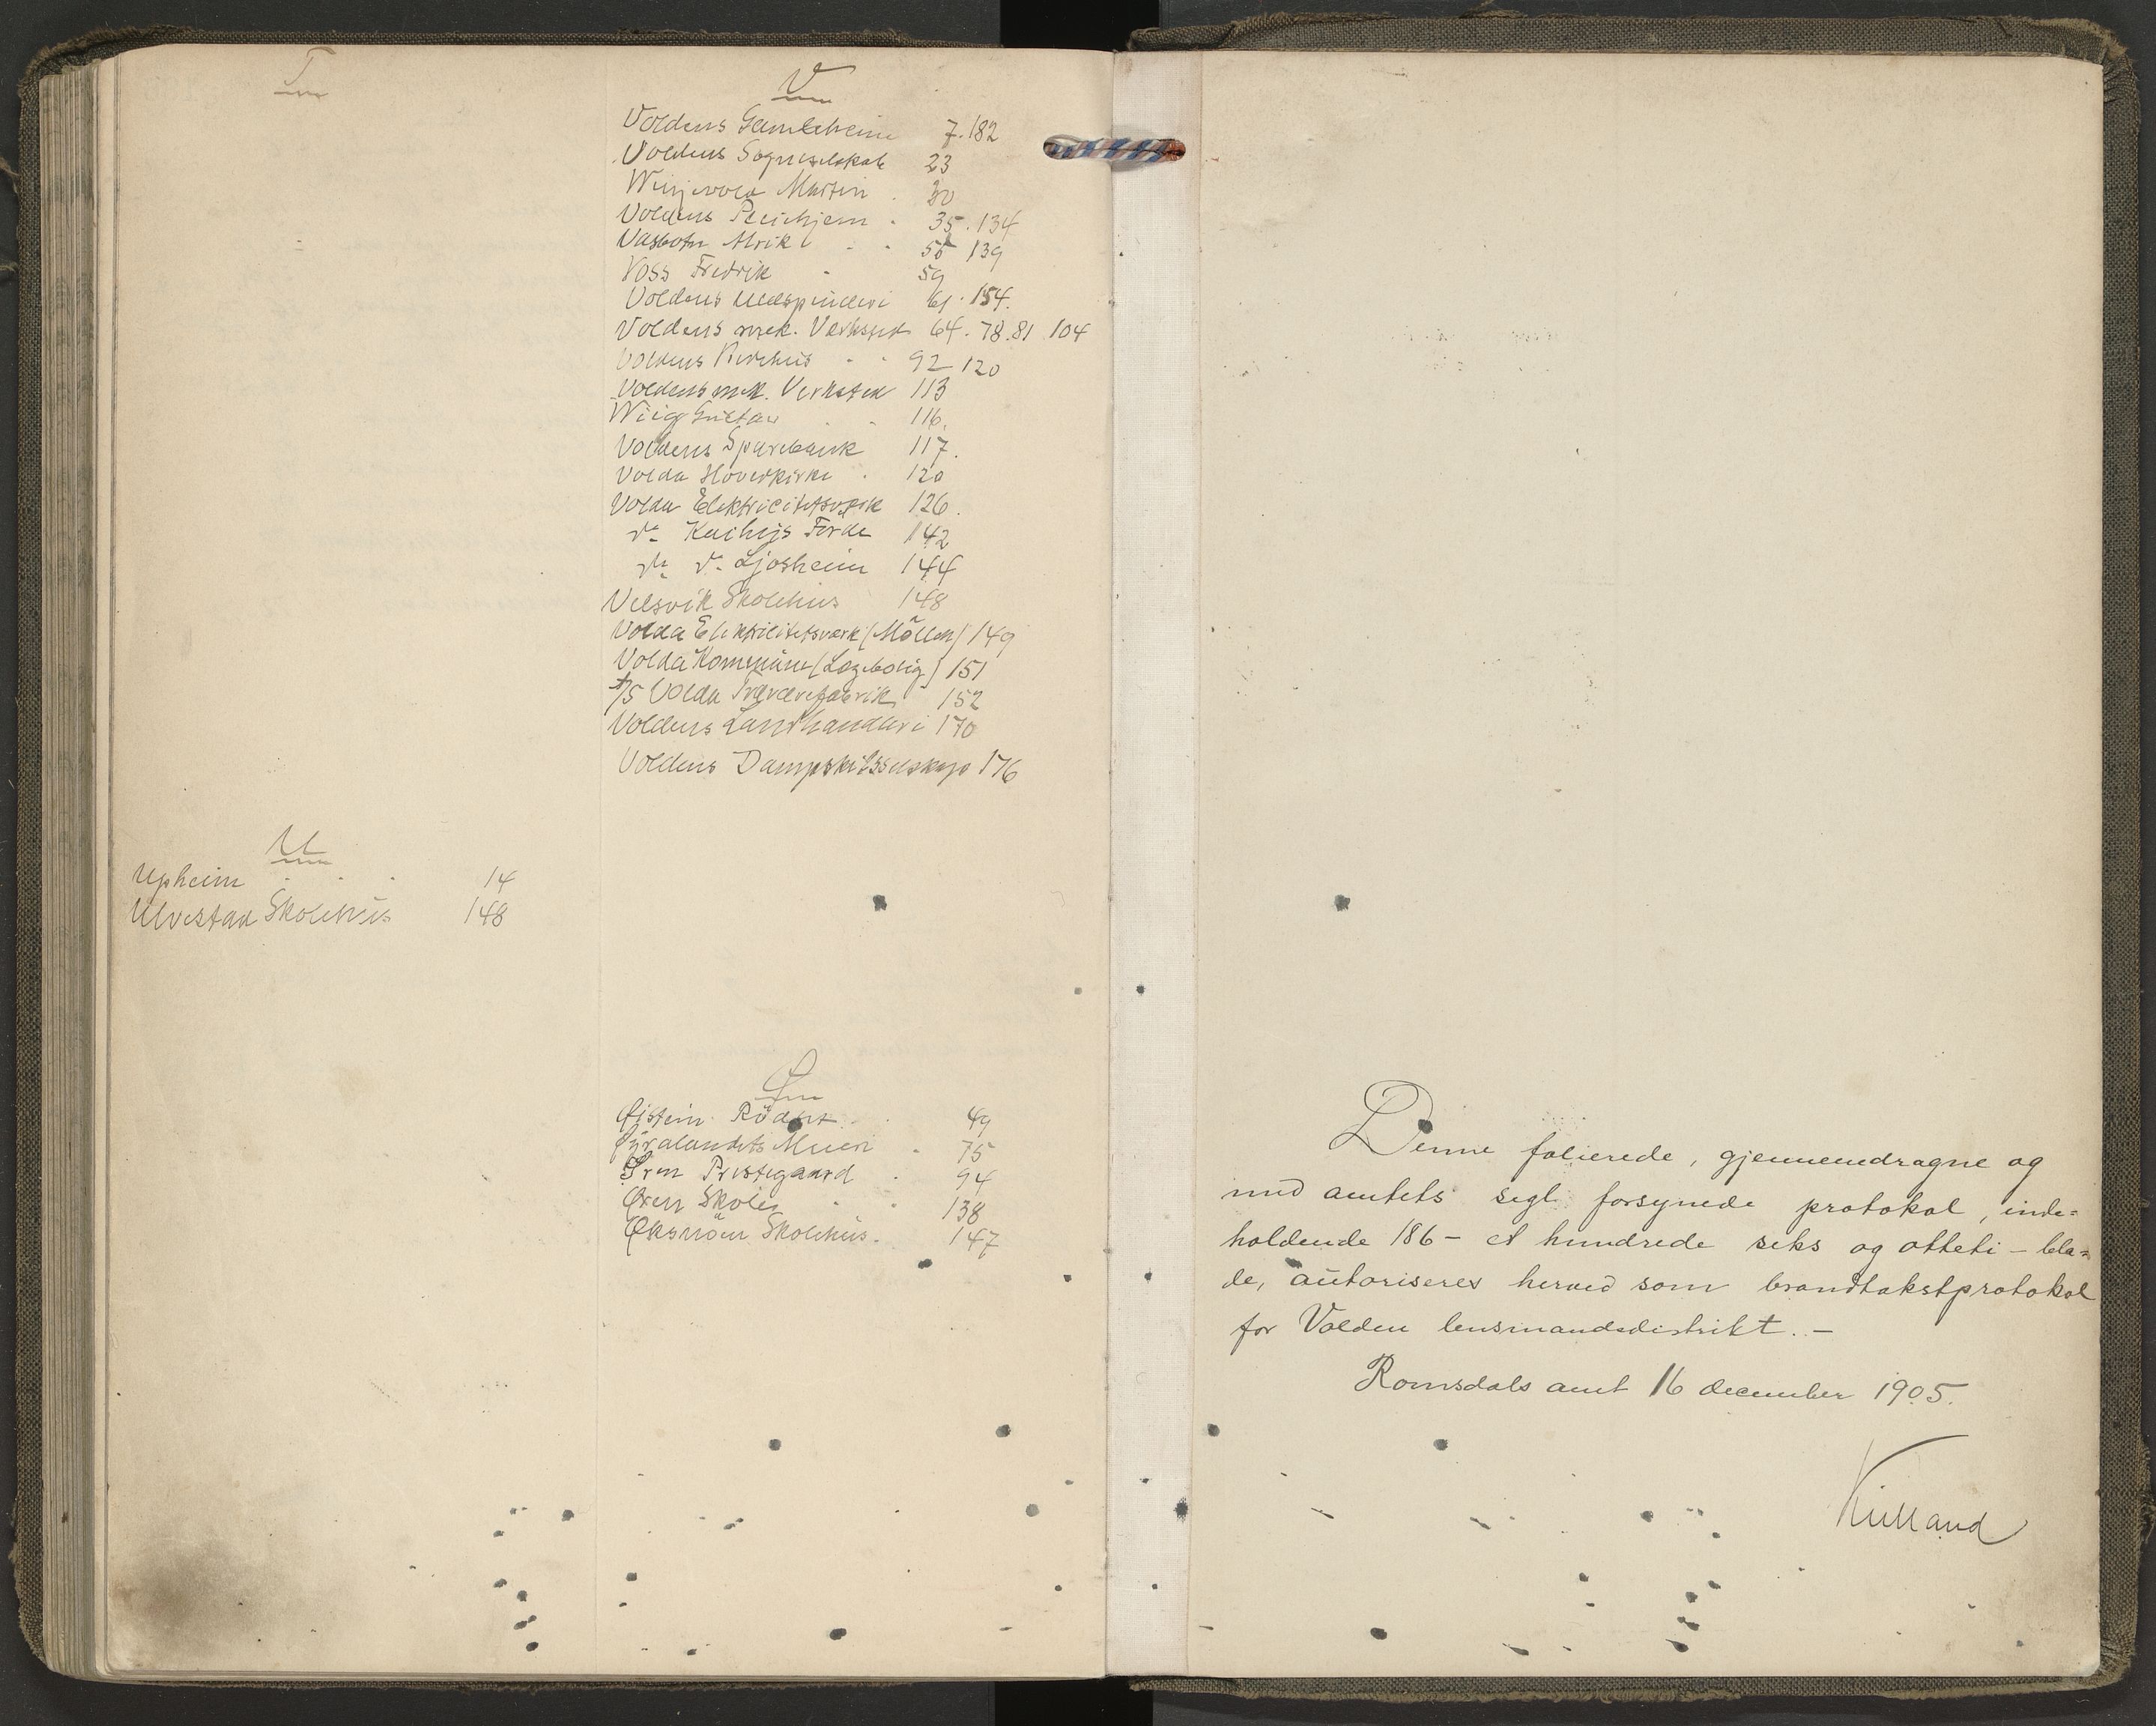 T
U
Upheim . . . 14
Ulvestad Skolehus 148
V
Voldens Gamleheim 7. 182
Voldens Sogneselskab 23
Martin . 30
Voldens Pleiehjem . 35. 134
Vasbotn Alrik . . 55 139
Voss Fredrik . 59
Voldens Uldspinderi 61. 154.
Voldens mek. Verksted 64. 78. 81 104
Voldens . . 92 120
Voldens mek. Verksted 113
Wiig Gustav . . 116.
Voldens Sparebank 117.
Volda Hovedkirke . 120
Volda Elektricitetsverk 126.
do Førde 142
do do Ljosheim 144
Velsvik Skolehus 148
Volda Elektricitetsverk (Möllen) 149
Volda Kommune (Lægebolig) 151
A/S Volda Trævarefabrik 152
Voldens Landhandleri 170
Voldens Dampskibsselskap 176
Ø
Øistein Rödset . 49
Meieri . 75
Ørsten Prestegaard . 94
Skole . . 138
Øksnöen Skolehus . 147
Denne folierede, gjennemdragne og
med amtets segl forsynede protokol, inde=
holdende 186 - et hundrede seks og otteti - bla=
de, autoriseres herved som brandtakstprotokol
for Volden lensmandsdistrikt. -
Romsdals amt 16 december 1905.
Kielland